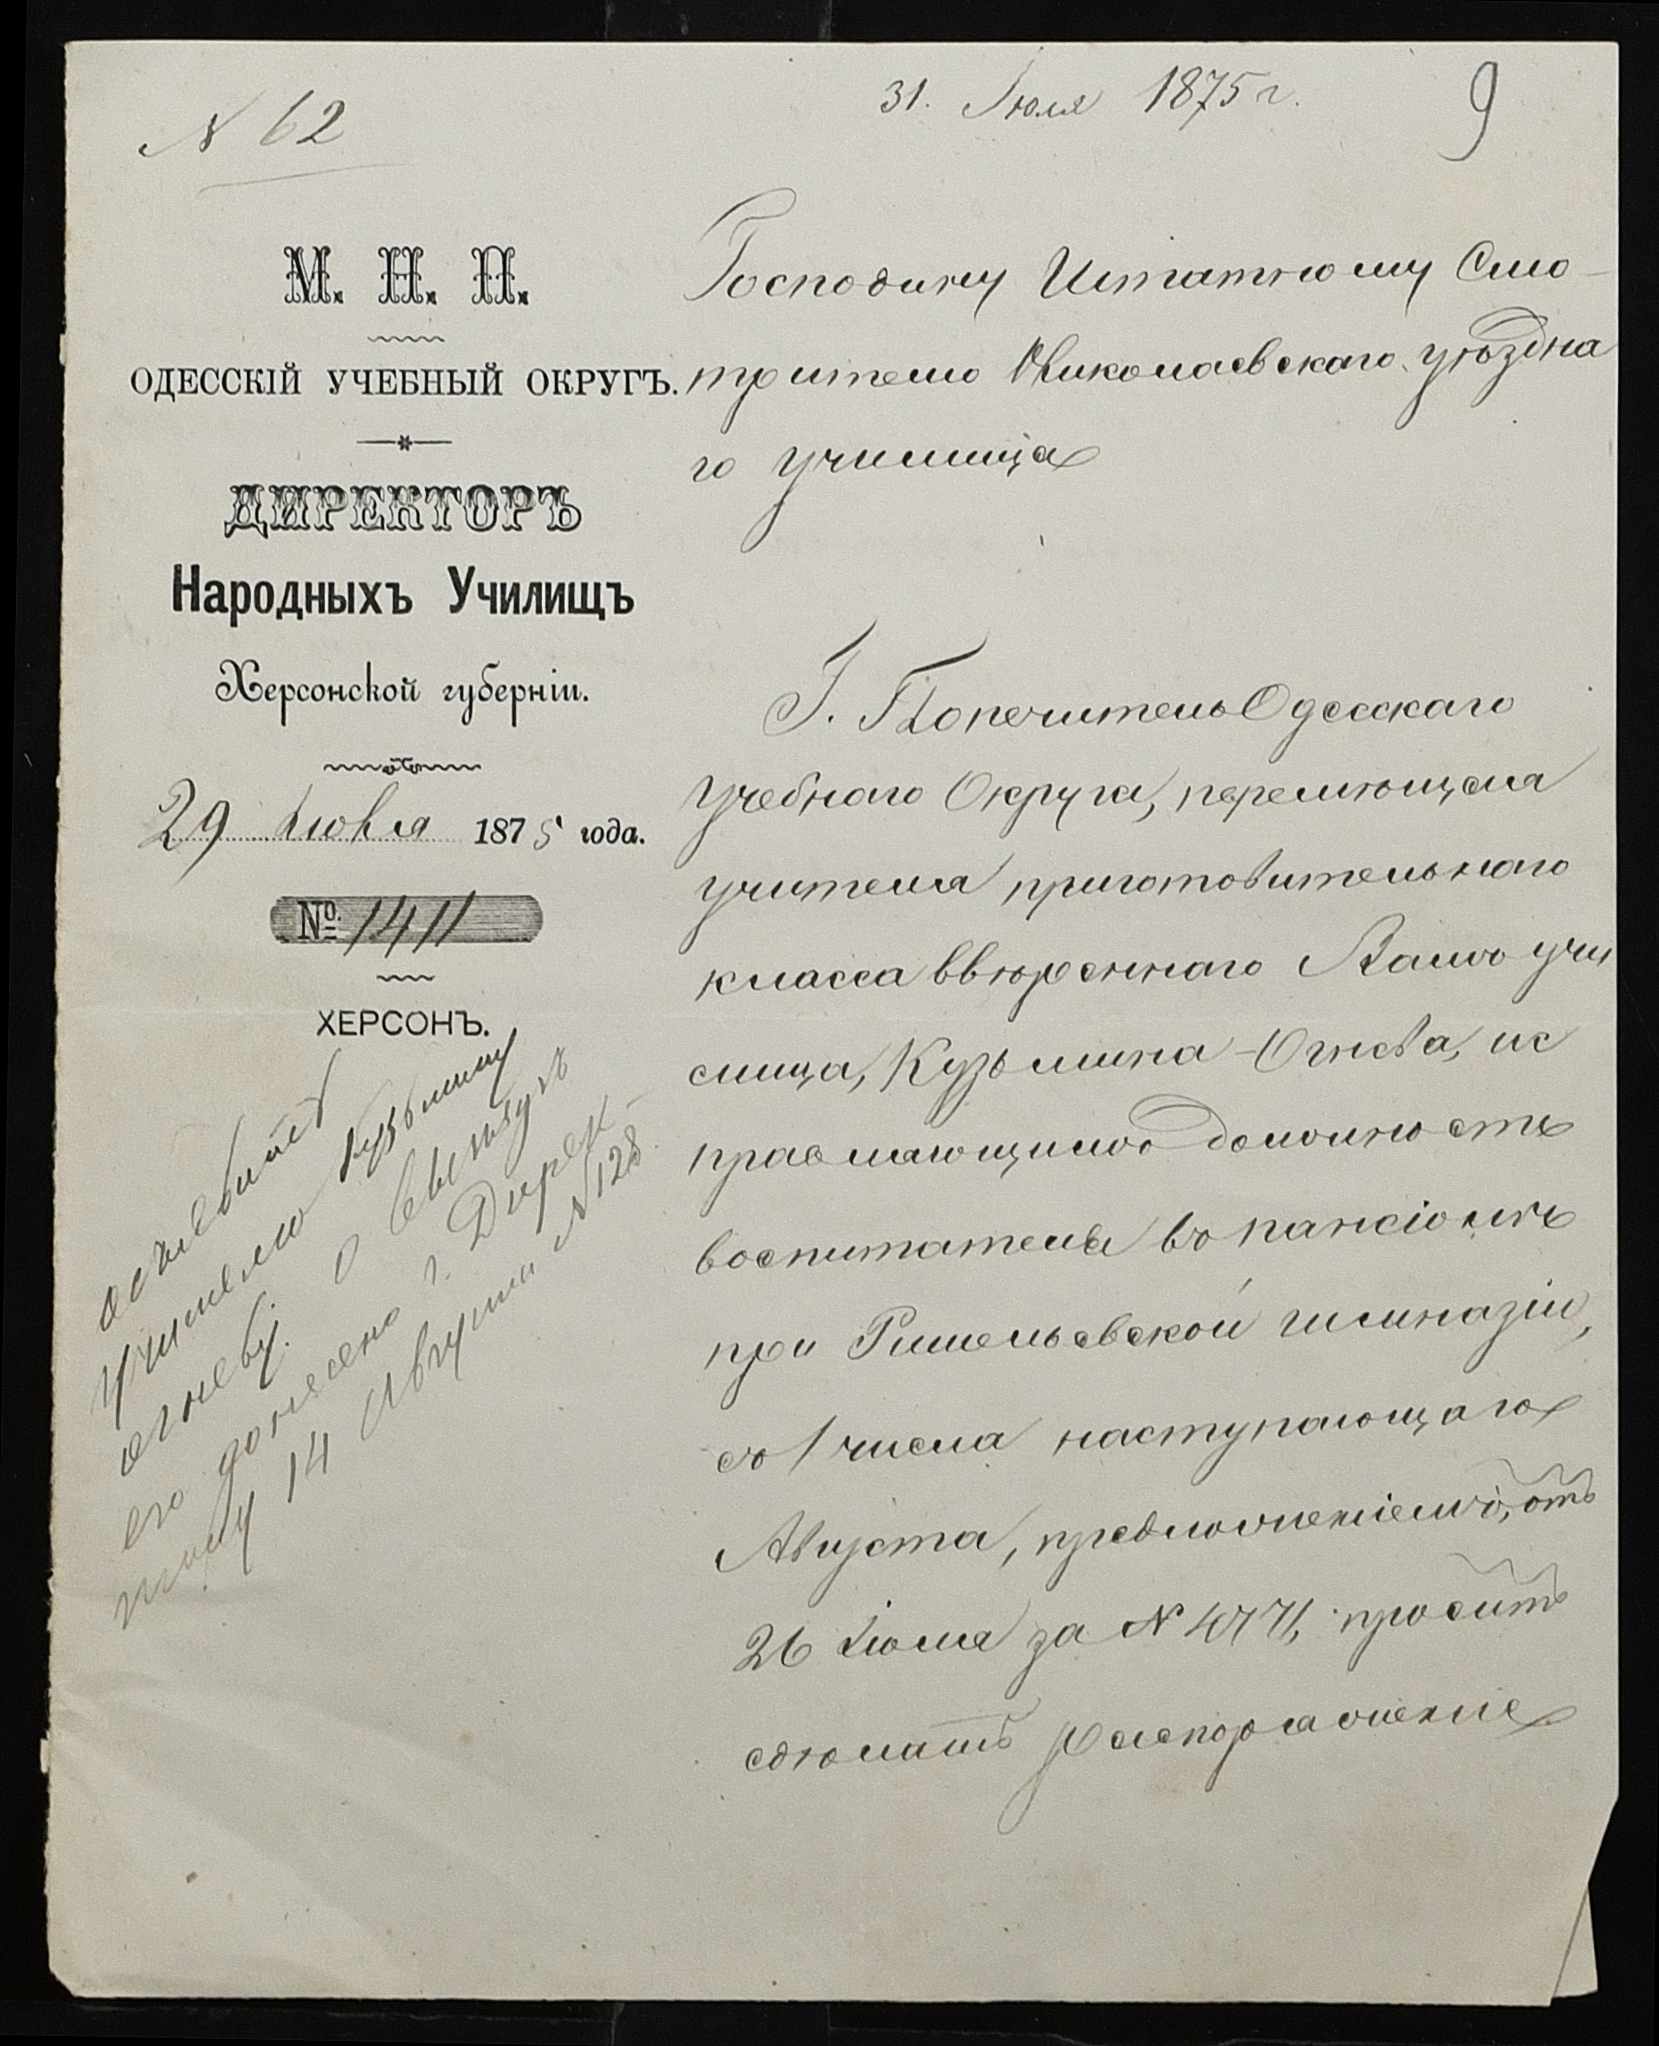 № 62
31. Июля 1875 г.
9
М. Н. П.
ОДЕССКІЙ УЧЕБНЫЙ ОКРУГЪ.
ДИРЕКТОРЪ
Народныхъ Училищъ
Херсонской губерніи.
29 Июля 1875 года.
№ 1411
ХЕРСОНЪ.
Господину Штатному Смо-
трителю Николаевскаго уѣздна
го училища
Г. Попечитель Одесскаго
Учебнаго Округа, перемѣщая
учителя приготовительнаго
класса ввѣреннаго Вамъ учи
лища, Кузьмина-Огнева, ис
правляющимъ должность
воспитателя въ пансіонѣ
при Ришельевской гимназіи,
съ 1 числа наступающаго
Августа, предложеніемъ, отъ
26 Іюля за № 4771, проситъ
сдѣлать распоряженіе
объявитъ
учителю Кузьмину
Огневу. О выѣздѣ
его донесено г. Дирек-
тору 14 Августа № 128.